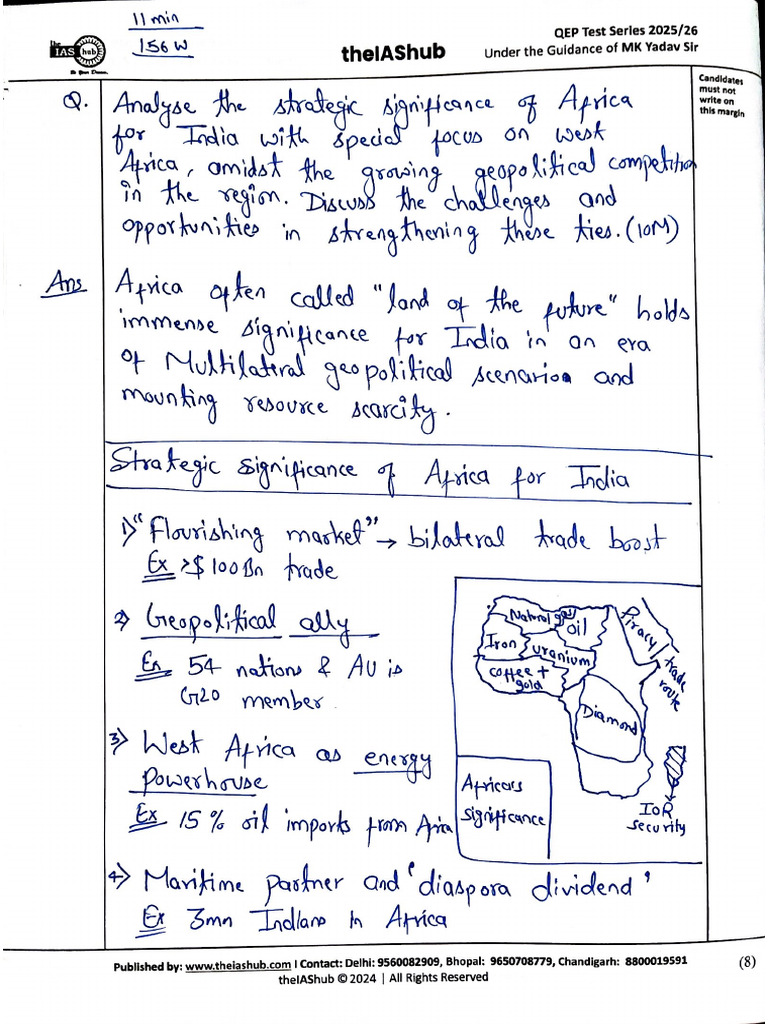 11 min
156 W
The IAS hub
theIAShub
QEP Test Series 2025/26
Under the Guidance of MK Yadav Sir
Candidates
must not
write on
this margin
Q. Analyse the strategic significance of Africa
for India with special focus on west
Africa, amidst the growing geopolitical competition
in the region. Discuss the challenges and
opportunities in strengthening these ties. (10M)
Ans Africa often called "land of the future" holds
immense significance for India in an era
of Multilateral geopolitical scenario and
mounting resource scarcity.
Strategic significance of Africa for India
1) "Flourishing market" → bilateral trade boost
Ex >$100Bn trade
2) Geopolitical ally
Ex 54 nations & AU is
G20 member
3) West Africa as energy
Powerhouse
Ex 15% oil imports from Africa
4) Maritime partner and 'diaspora dividend'
Ex 3mn Indians in Africa
Natural gas
oil
Iron
uranium
coffee +
gold
Diamond
Piracy
trade
route
IOR
security
Africa's
significance
Published by: www.theiashub.com I Contact: Delhi: 9560082909, Bhopal: 9650708779, Chandigarh: 8800019591
theIAShub © 2024 | All Rights Reserved
(8)